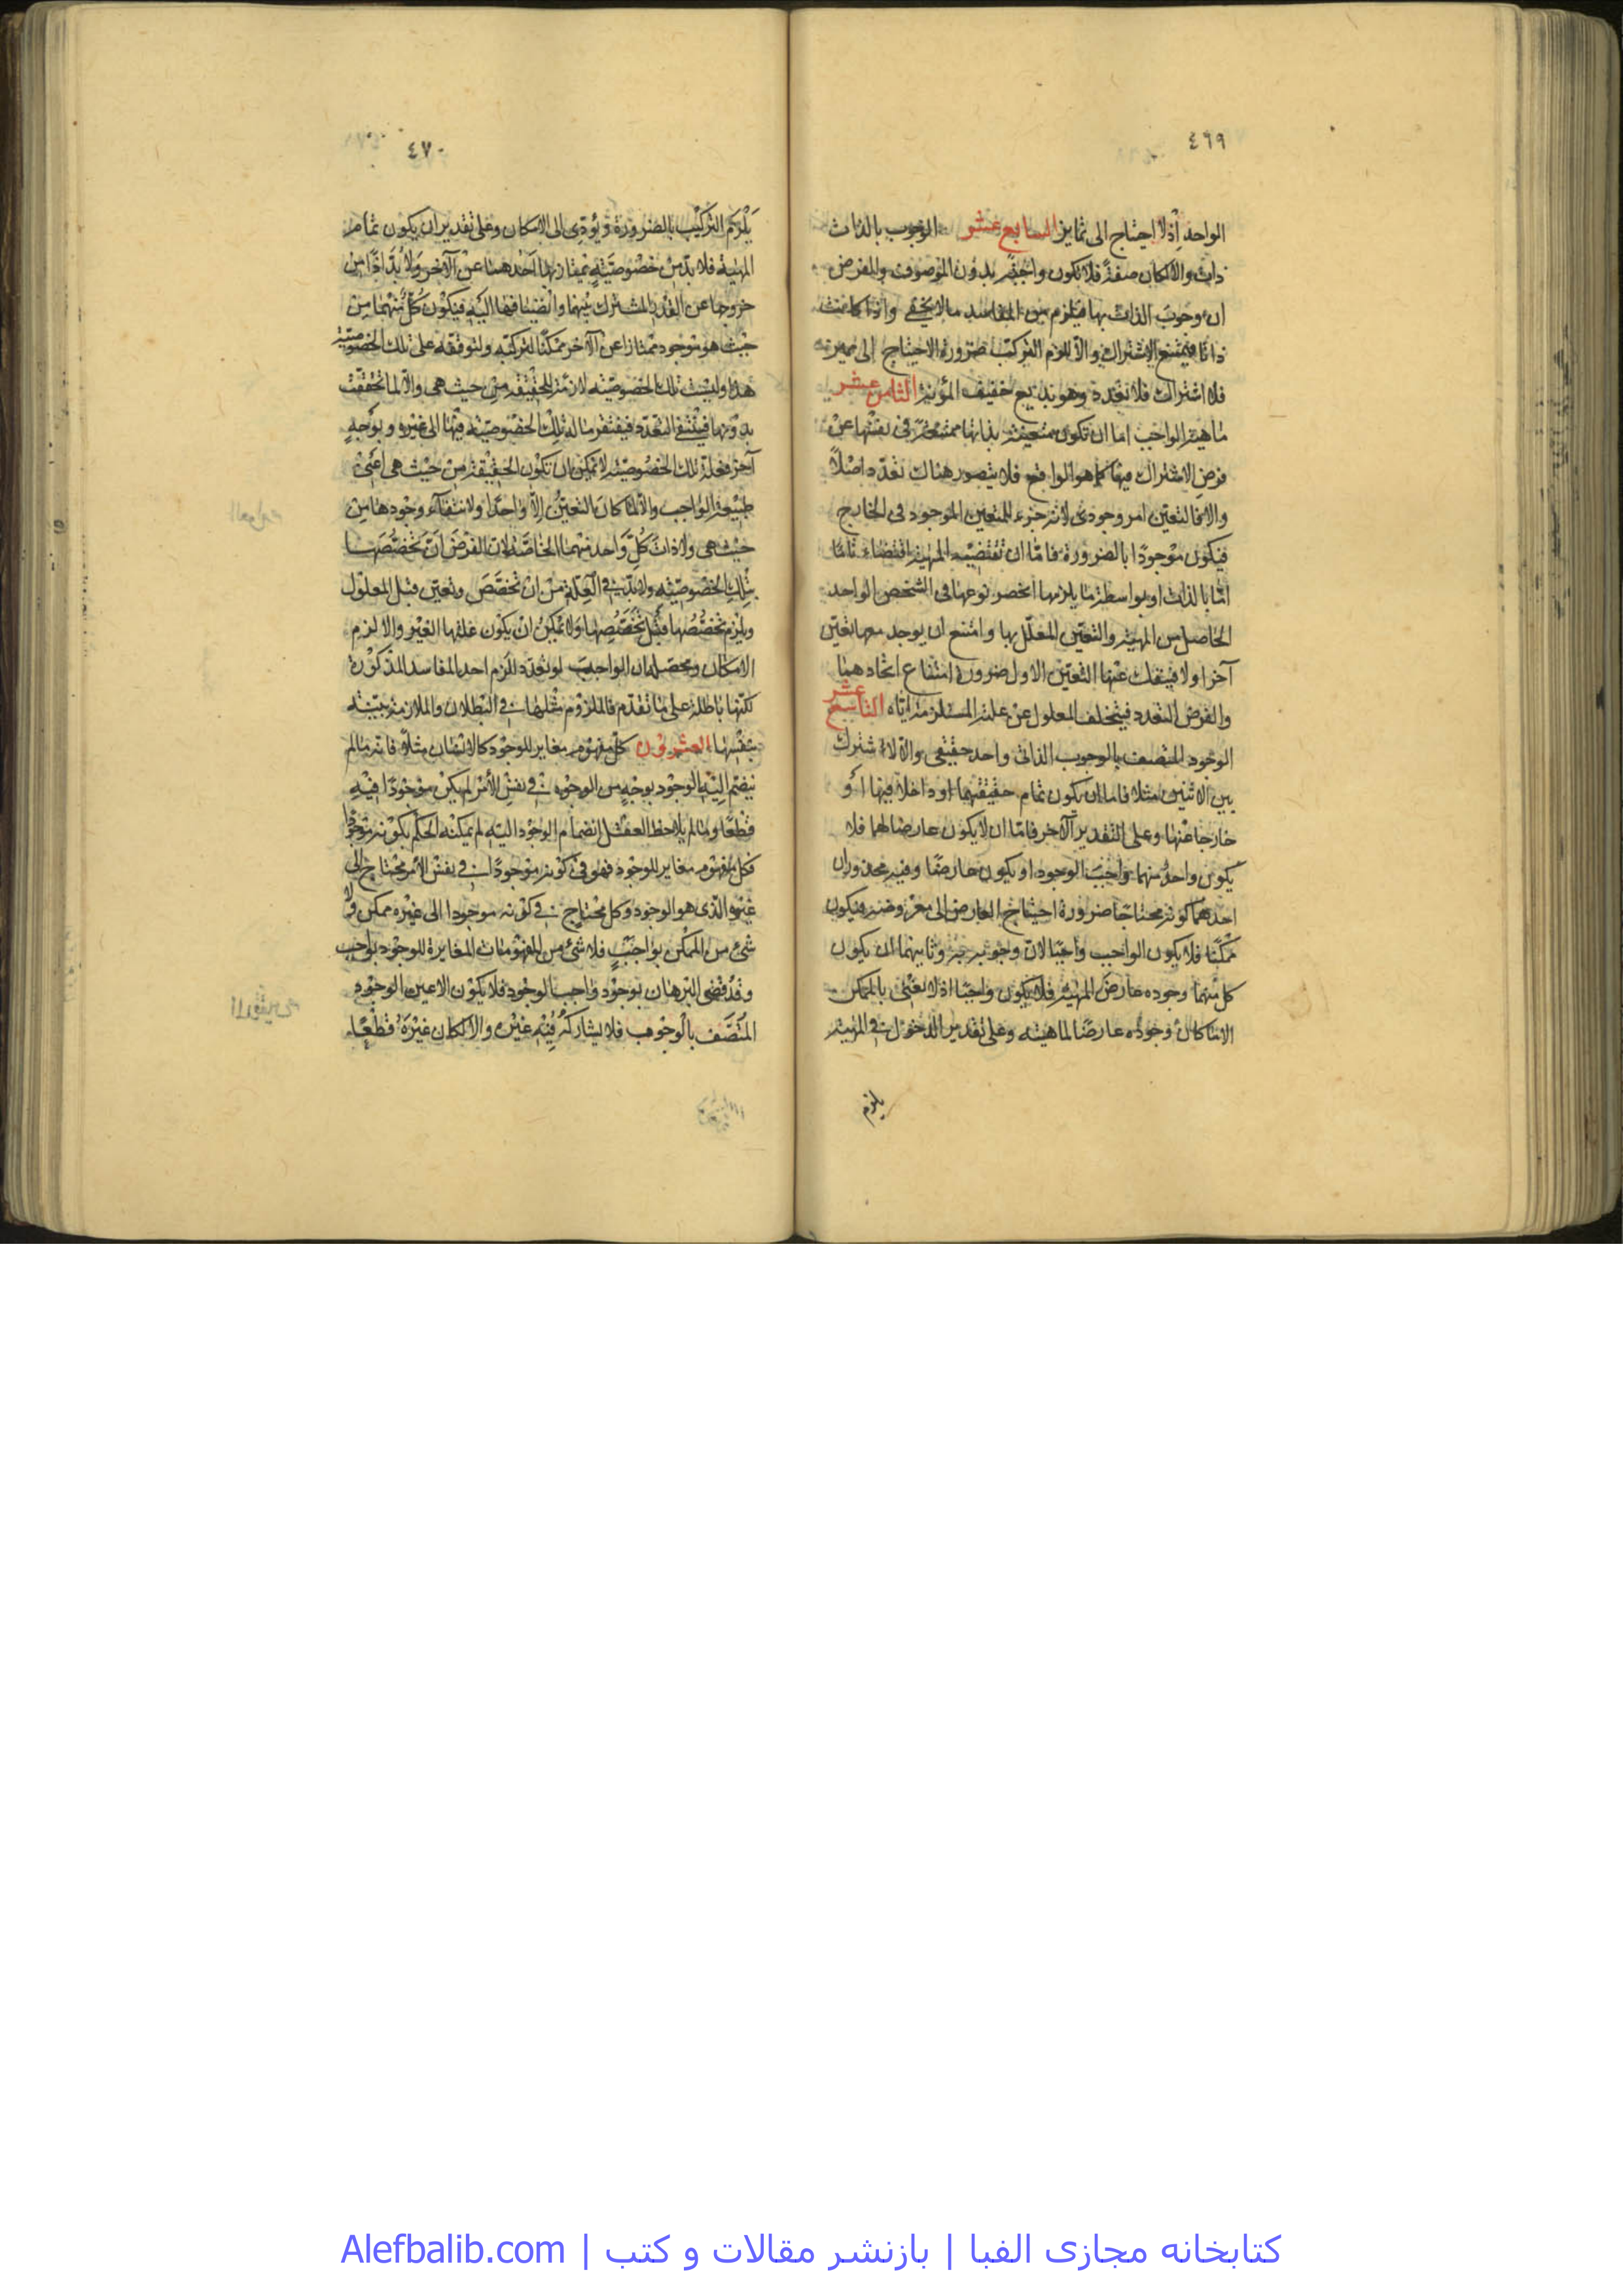 ٤٦٩
الواحد اذ لا احتياج الى تمايز السابع عشر الوجوب بالذات
ذات والا لكان صفة فلا تكون واجبة بدون الموصوف والمفروض
ان وجوب الذات بها فيلزم من المفاسد ما لا يخفى واذا كانت
ذاتا فيمتنع الاشتراك والا لزم التركيب ضرورة الاحتياج الى مميز
فلا اشتراك فلا تعدد وهو بديع خفيف المؤنة الثامن عشر
ماهية الواجب اما ان تكون متعينة بذاتها ممتنعة في نفسها عن
فرض الاشتراك فيها كما هو الواقع فلا يتصور هناك تعدد اصلاً
والا فالتعين امر وجودى لانه جزء للمتعين الموجود فى الخارج
فيكون موجودًا بالضرورة فامّا ان تقتضيه المهية اقتضاء تامًا
امّا بالذات او بواسطة ما يلازمها انحصر نوعها فى الشخص الواحد
الحاصل من المهية والتعين المعلّل بها وامتنع ان يوجد معها تعين
آخر او لا فينفك عنها التعين الاول ضرورة امتناع اتحادهما
والفرض التعدد فيتخلف المعلول عن علته المستلزمة اياه التاسع عشر
الوجود المتصف بالوجوب الذاتى واحد حقيقى والا لاشترك
بين الاثنين مثلا فاما ان يكون تمام حقيقتهما او داخلا فيها او
خارجا عنها وعلى التقدير الآخر فامّا ان لا يكون عارضا لهما فلا
يكون واحد منهما واجب الوجود او يكون عارضًا وفيه محذوران
احدهما كونه محتاجًا ضرورة احتياج العارض الى معروضه فيكون
ممكنًا فلا يكون الواجب واجبًا لانّ وجوبه به وثانيهما ان يكون
كل منهما وجوده عارض المهية فلا يكون واجبًا اذ لا نعنى بالممكن
الا ما كان وجوده عارضًا لماهيته وعلى تقدير الدخول في المهية
يلزم
٤٧٠
يلزم التركيب بالضرورة ويؤدى الى الامكان وعلى تقدير ان يكون تمام
المهية فلا بدّ من خصوصيّة يمتاز بها احدهما عن الآخر ولا بدّ اذًا من
خروجها عن القدر المشترك بينهما وانضيافها اليه فيكون كلّ منهما من
حيث هو موجود ممتازا عن الآخر ممكنًا لتركبه ولتوقفه على تلك الخصوصية
هذا وليست تلك الخصوصيّة لازمة للحقيقة من حيث هى والا لما تحققت
بدونها فينتفى التعدّد فيفتقر ما له تلك الخصوصيّة فيها الى غيره وبوجه
آخر فعلة تلك الخصوصيّة لا يمكن ان تكون الحقيقة من حيث هى اعنى
طبيعة الواجب والا لما كان التعين الا واحدًا ولانتفاء وجودها من
حيث هى ولا ذات كلّ واحد منهما الخاصّة لان الفرض انّ تخصّصها
بتلك الخصوصيّة ولا بدّ في العلة من ان تخصّص وتعين قبل المعلول
ويلزم تخصّصها قبل تخصّصها ولا يمكن ان يكون علتها الغير والا لزم
الامكان ومحصله ان الواجب لو تعدد لزم احد المفاسد المذكورة
لكنّها باطلة على ما تقدّم فالملزوم مثلها في البطلان والملازمة بيّنة
بنفسها العشرون كل مفهوم مغاير للوجود كالانسان مثلًا فانه ما لم
ينضم اليه الوجود بوجه من الوجوه في نفس الأمر لم يكن موجودًا فيه
قطعًا وما لم يلاحظ العقل انضمام الوجود اليه لم يمكنه الحكم بكونه موجودًا
فكل مفهوم مغاير للوجود فهو في كونه موجودًا في نفس الأمر محتاج الى
غيره الذى هو الوجود وكل محتاج في كونه موجودا الى غيره ممكن ولا
شئ من الممكن بواجب فلا شئ من المفهومات المغايرة للوجود بواجب
وقد قضى البرهان بوجود واجب الوجود فلا يكون الا عين الوجود
المتصف بالوجوب فلا يشاركه فيه غيره والا لكان غيره قطعًا
کتابخانه مجازی الفبا | بازنشر مقالات و کتب | Alefbalib.com